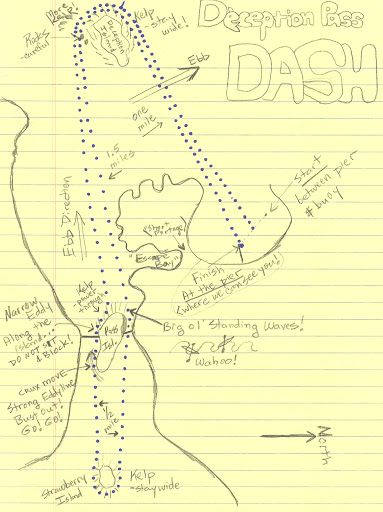 Deception Pass
DASH
More Rocks
Rocks
-careful
Kelp
- stay
wide!
Deception
Island
Ebb
one
mile
1.5
miles
Start
between pier
& buoy
Ebb Direction
(short portage)
"Escape
Bay"
Finish
At the pier
(where we can see you!)
Kelp
-power
through
Narrow
Eddy
Along the
island...
DO NOT SIT
& Block!
Pass
Isl.
Big ol' Standing Waves!
Wahoo!
crux move-
Strong Eddyline
Bust out!
GO! GO!
1/2
mile
North
Strawberry
Island
Kelp
- stay wide